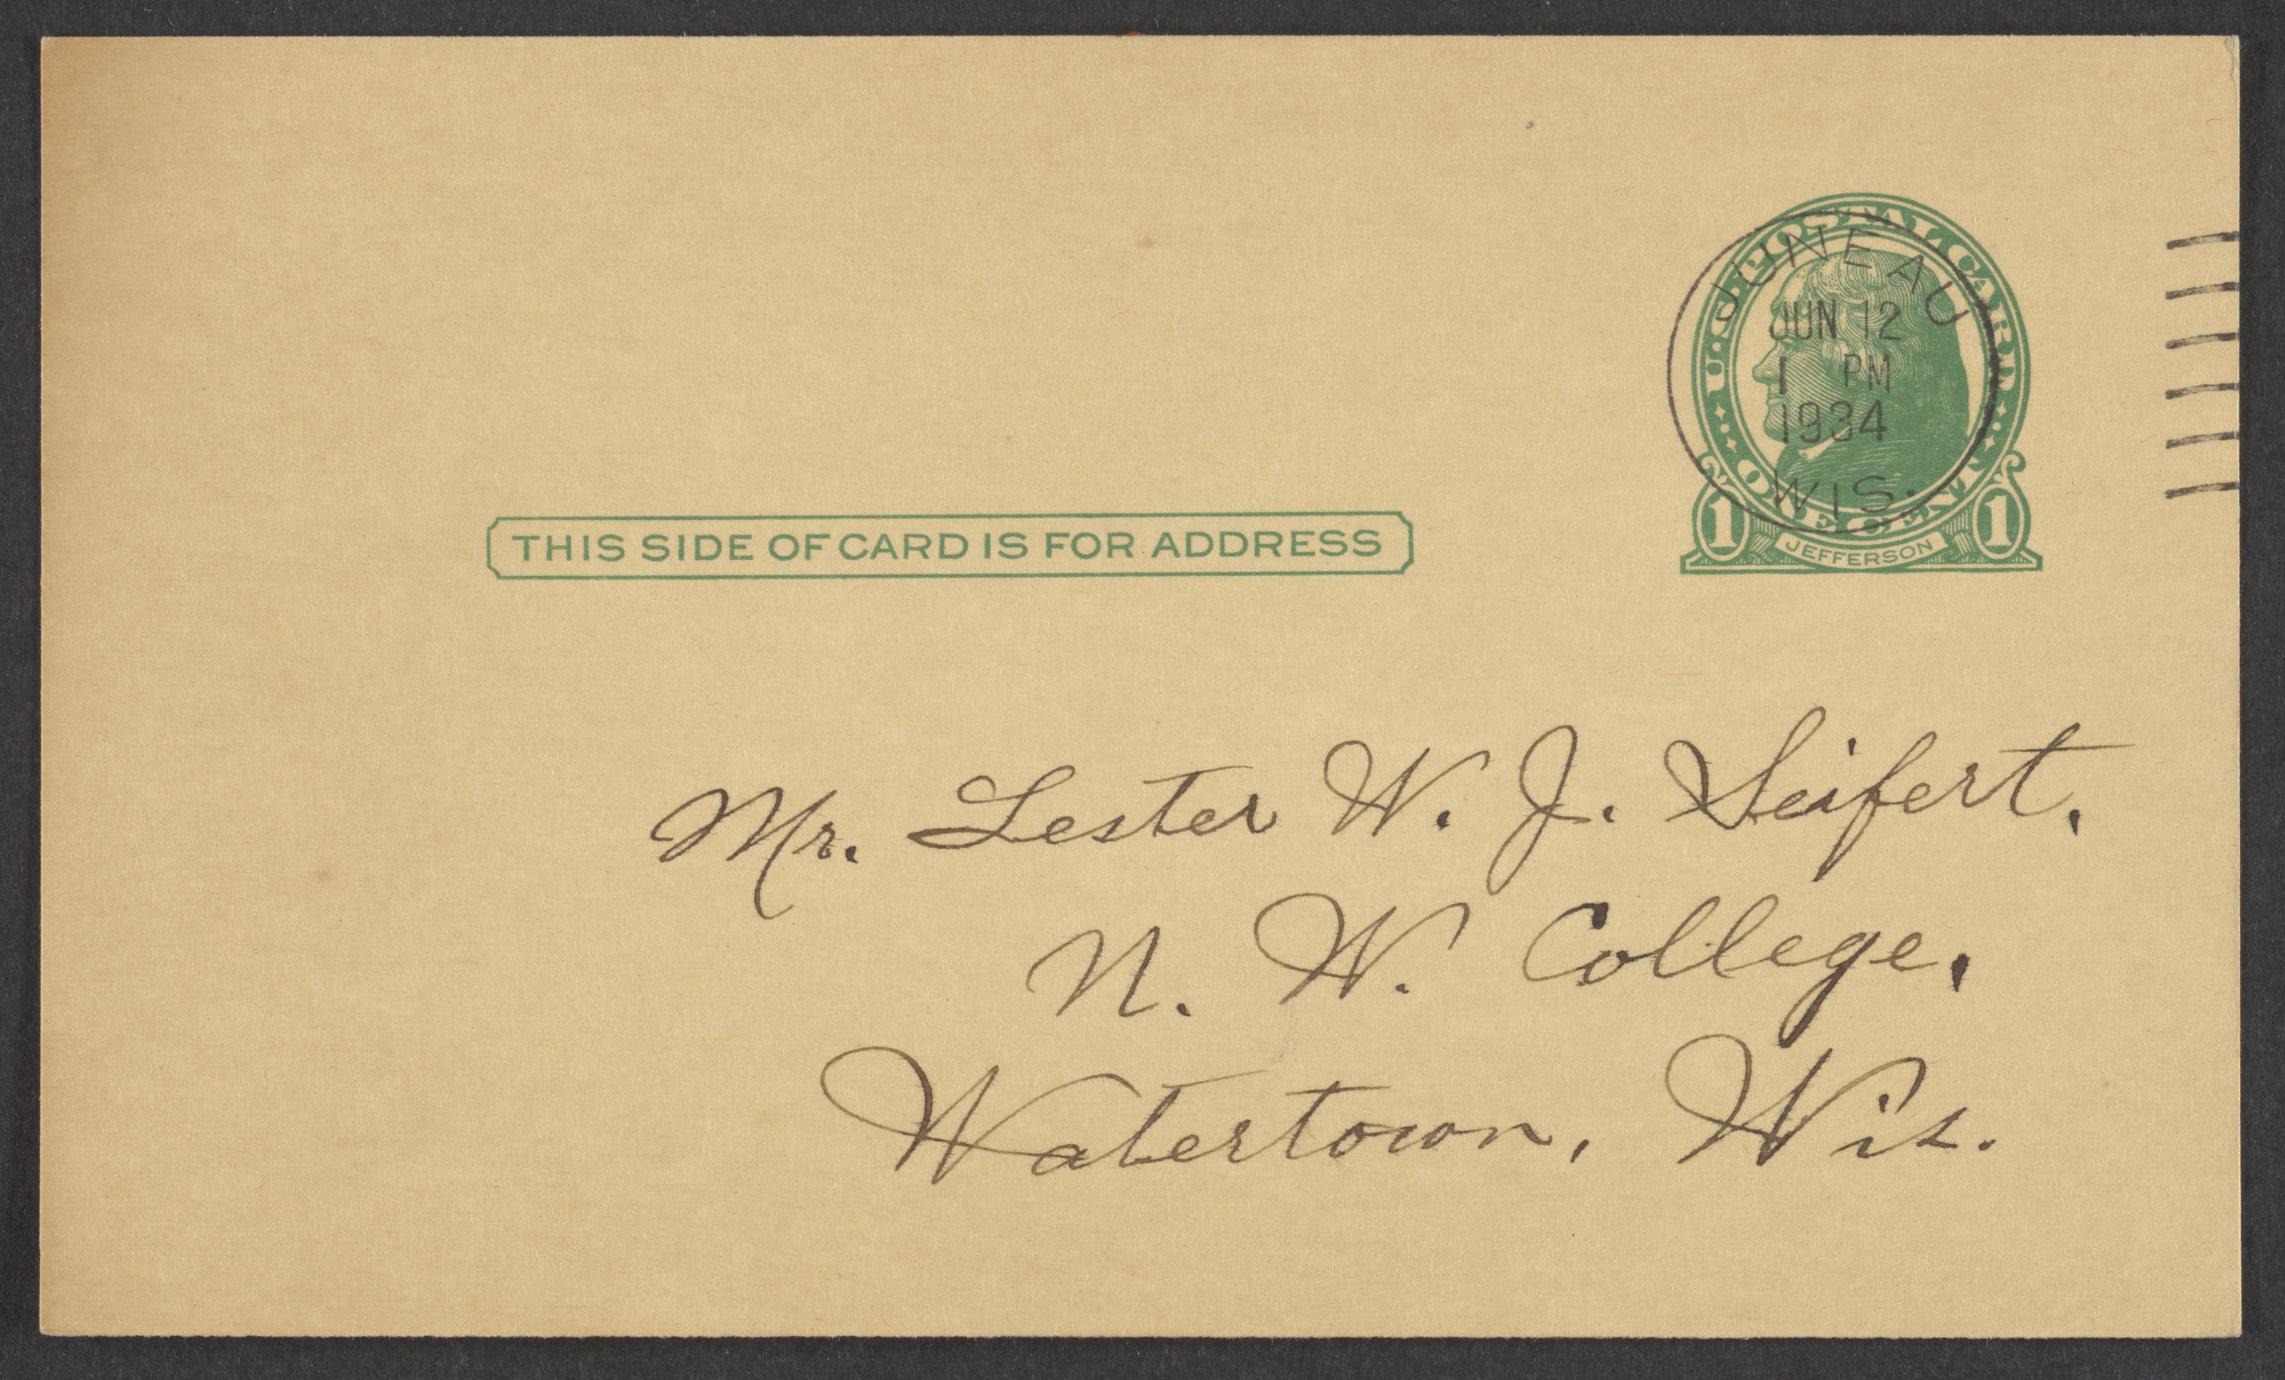 U·S·POSTAL CARD
JUNEAU
JUN 12
1 PM
1934
WIS.
ONE CENT
1 JEFFERSON 1
THIS SIDE OF CARD IS FOR ADDRESS
Mr. Lester W. J. Seifert,
N. W. College,
Watertown, Wis.